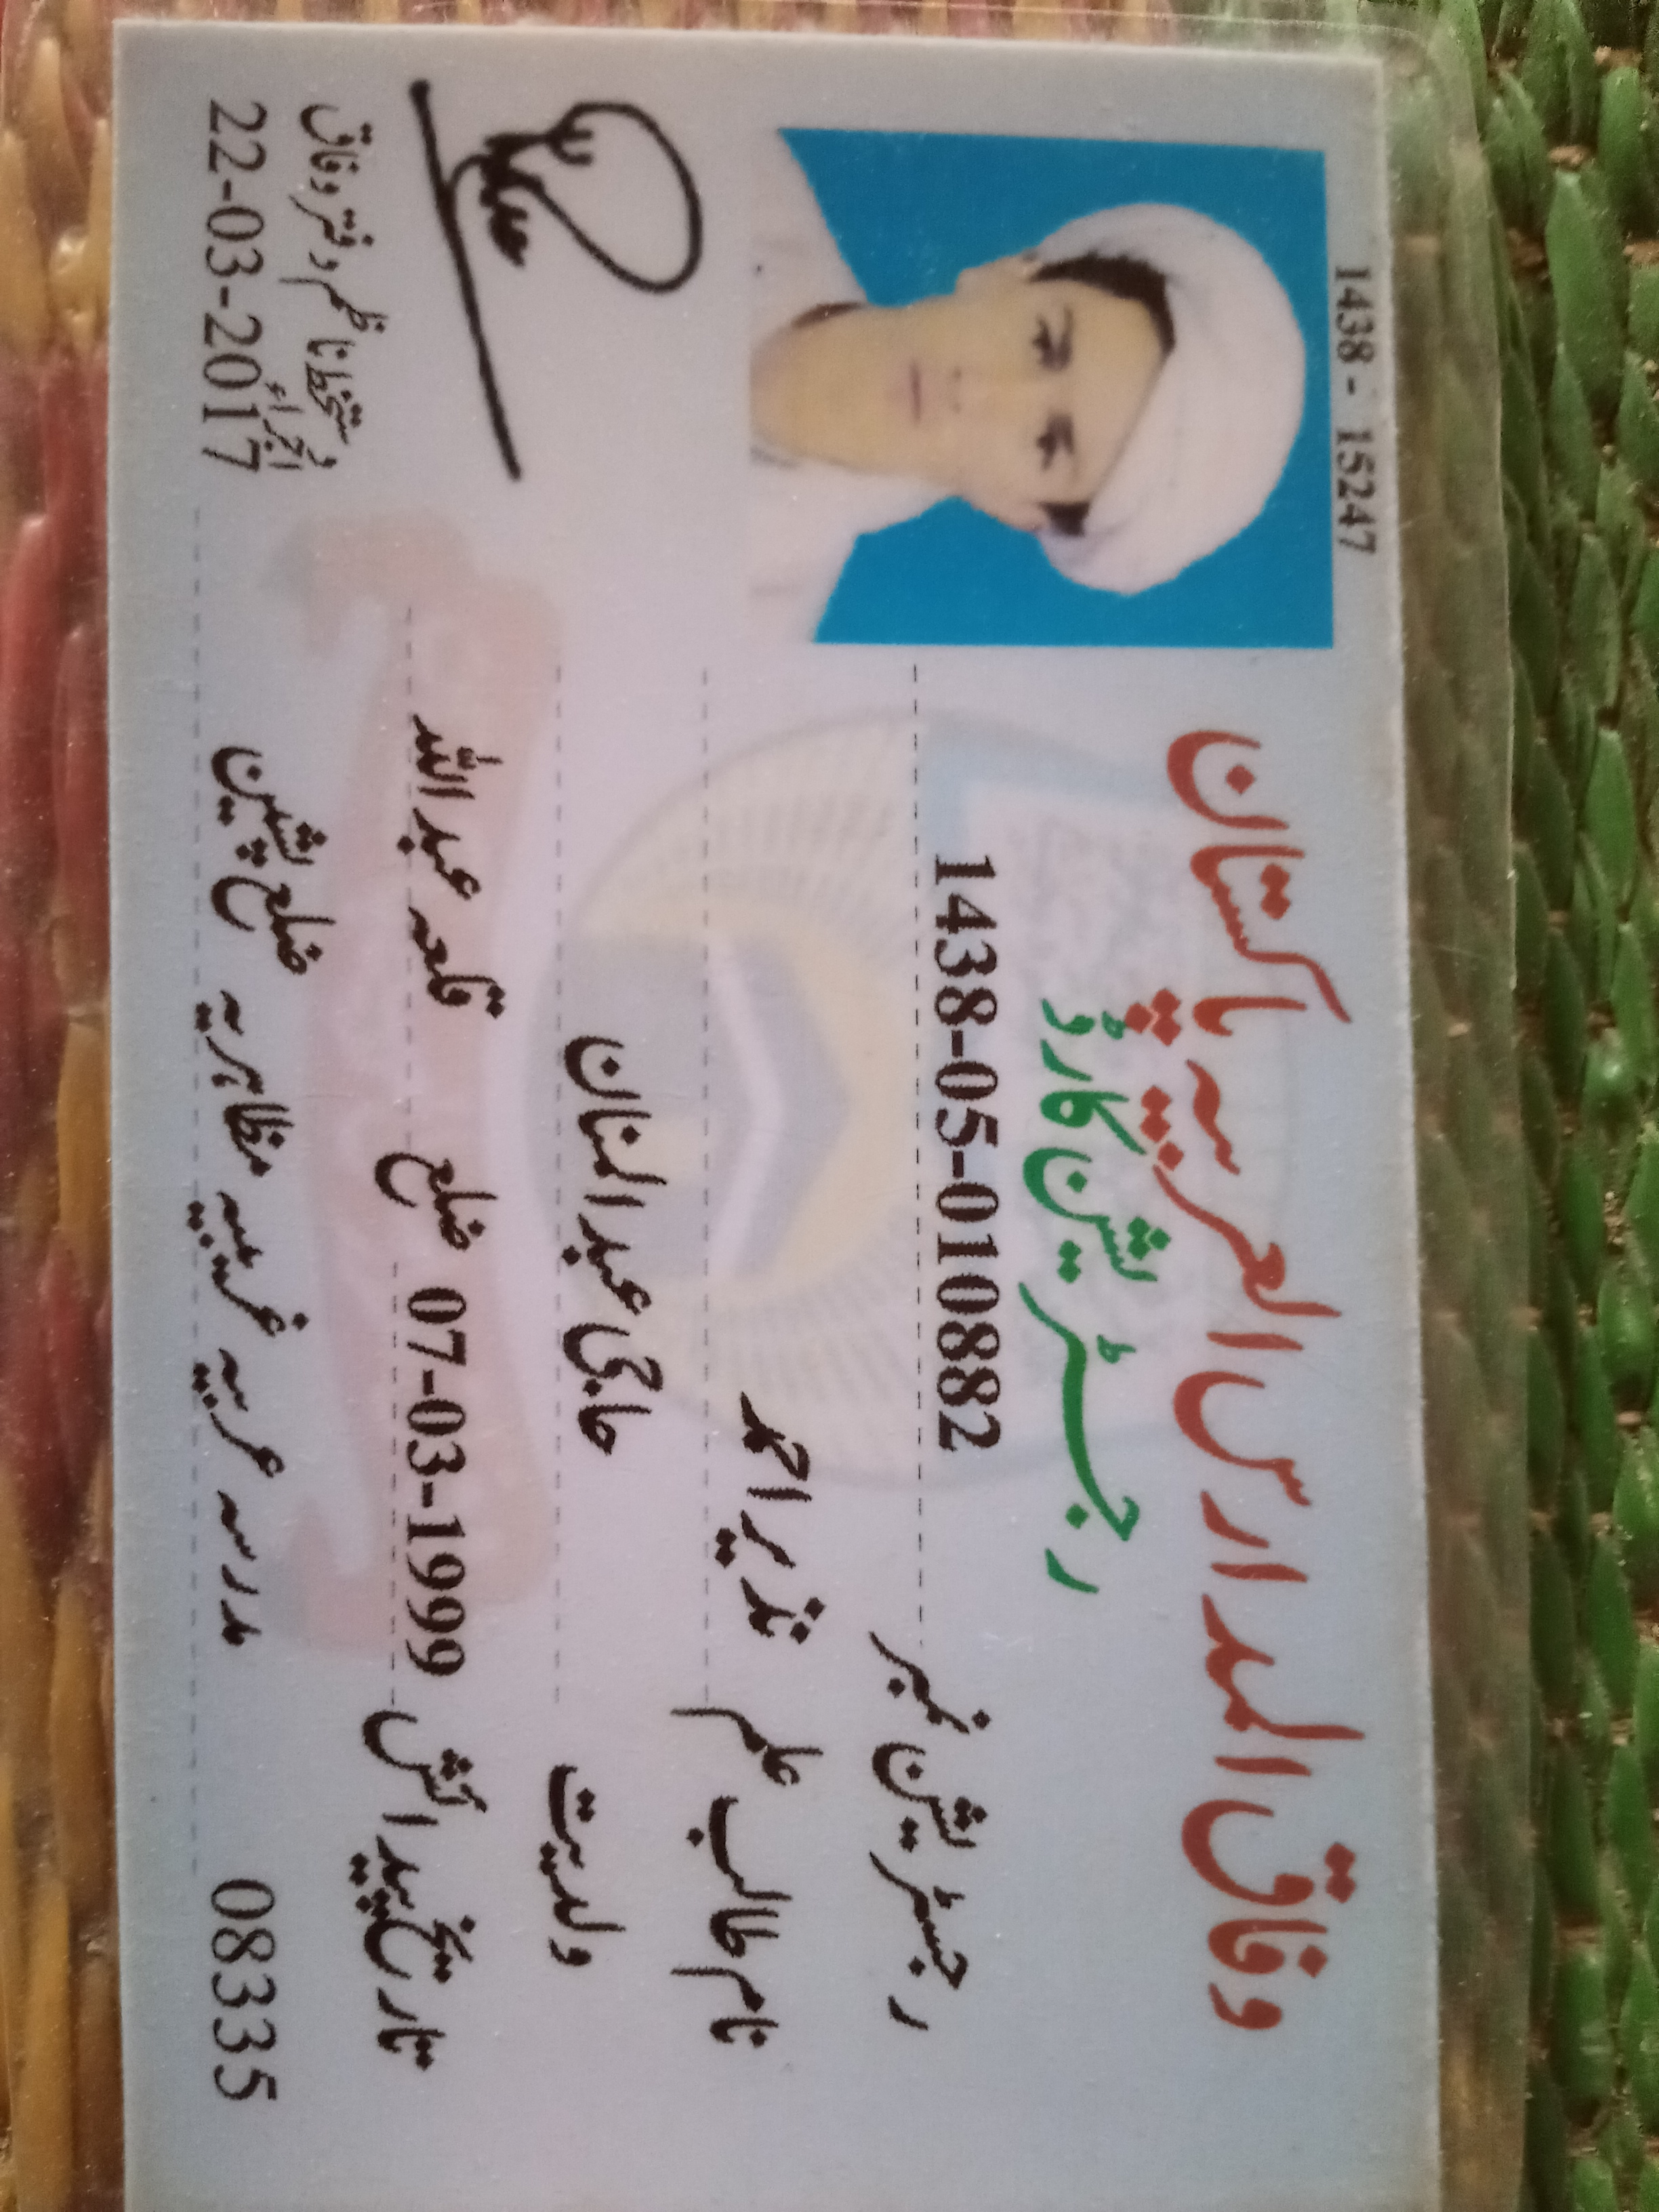 1438 - 15247
وفاق المدارس العربیہ پاکستان
رجسٹریشن کارڈ
رجسٹریشن نمبر 1438-05-010882
نام طالب علم نذیر احمد
ولدیت حاجی عبدالمنان
تاریخ پیدائش 07-03-1999 ضلع قلعہ عبداللہ
08335 مدرسہ عربیہ غریبیہ مظاہریہ ضلع پشین
دستخط ناظم دفتر وفاق
اجراء
22-03-2017